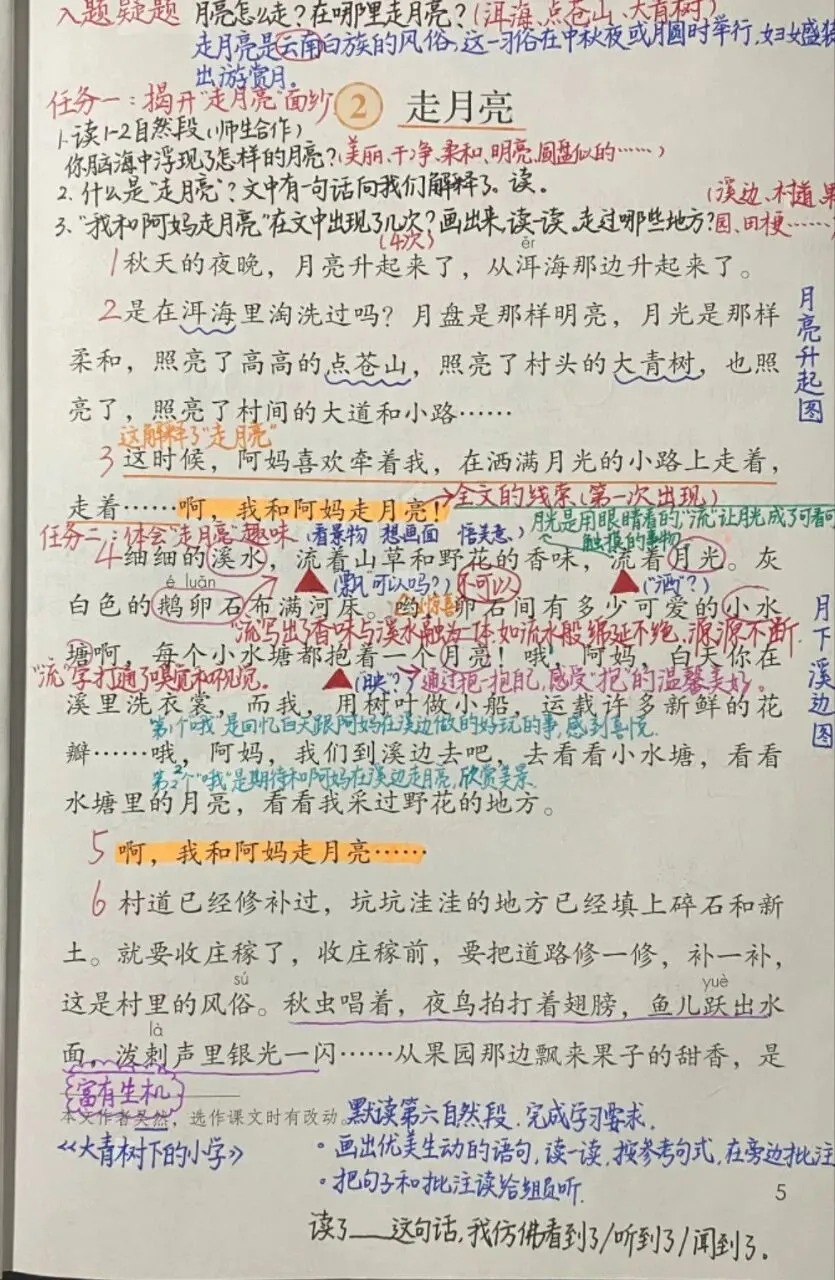 入题疑题 月亮怎么走？在哪里走月亮？（洱海、点苍山、大青树）
走月亮是云南白族的风俗，这一习俗在中秋夜或月圆时举行，妇女盛装
出游赏月。
任务一：揭开“走月亮”面纱 2 走月亮
1.读1-2自然段（师生合作）
你脑海中浮现了怎样的月亮？（美丽、干净、柔和、明亮、圆盘似的……）
2.什么是“走月亮”？文中有一句话向我们解释了。读。
（溪边、村道、果
3.“我和阿妈走月亮”在文中出现了几次？画出来，读一读，走过哪些地方？园、田埂……）
（4次）
ěr
1秋天的夜晚，月亮升起来了，从洱海那边升起来了。
2是在洱海里淘洗过吗？月盘是那样明亮，月光是那样
柔和，照亮了高高的点苍山，照亮了村头的大青树，也照
亮了，照亮了村间的大道和小路……
月亮升起图
这解释了“走月亮”
3这时候，阿妈喜欢牵着我，在洒满月光的小路上走着，
走着……啊，我和阿妈走月亮！→全文的线索（第一次出现）
月光是用眼睛看的，“流”让月光成了可看可
触摸的事物
任务二：体会“走月亮”趣味（看景物 想画面 悟美意）
4细细的溪水，流着山草和野花的香味，流着月光。灰
é luǎn
（“飘”可以吗？）不可以 （“洒”？）
白色的鹅卵石布满河床。哟，卵石间有多少可爱的小水
惊喜
“流”写出了香味与溪水融为一体，如流水般绵延不绝，源源不断。
塘啊，每个小水塘都抱着一个月亮！哦，阿妈，白天你在
“流”字打通了嗅觉和视觉。
（映？）→通过抱一抱自己，感受“抱”的温馨美好。
溪里洗衣裳，而我，用树叶做小船，运载许多新鲜的花
第1个“哦”是回忆白天跟阿妈在溪边做的好玩的事，感到喜悦。
瓣……哦，阿妈，我们到溪边去吧，去看看小水塘，看看
第2个“哦”是期待和阿妈在溪边走月亮，欣赏美景。
水塘里的月亮，看看我采过野花的地方。
月下溪边图
5啊，我和阿妈走月亮……
6村道已经修补过，坑坑洼洼的地方已经填上碎石和新
土。就要收庄稼了，收庄稼前，要把道路修一修，补一补，
sú yuè
这是村里的风俗。秋虫唱着，夜鸟拍打着翅膀，鱼儿跃出水
là
面，泼剌声里银光一闪……从果园那边飘来果子的甜香，是
富有生机
本文作者吴然，选作课文时有改动。
《大青树下的小学》
默读第六自然段，完成学习要求。
·画出优美生动的语句，读一读，按参考句式，在旁边批注
·把句子和批注读给组员听。
5
读了___这句话，我仿佛看到了/听到了/闻到了。